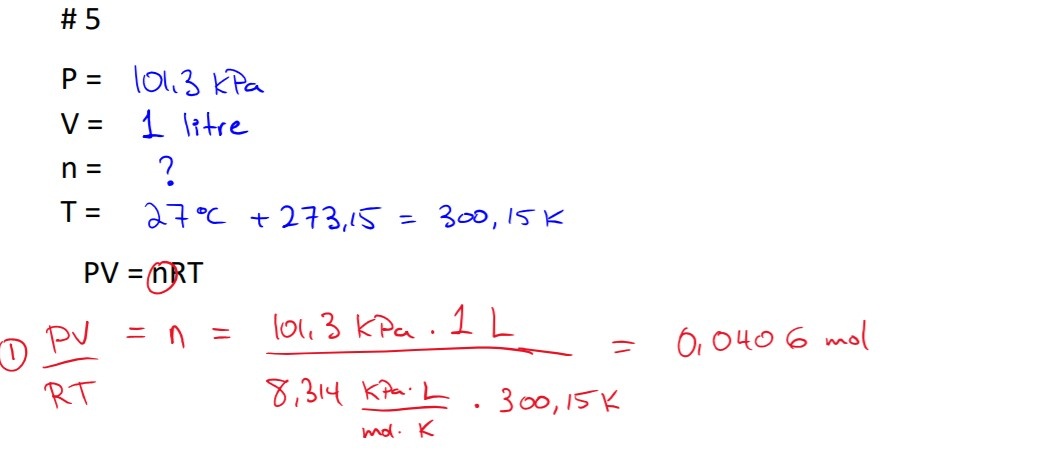 # 5
P = 101,3 kPa
V = 1 litre
n = ?
T = 27°C + 273,15 = 300,15 K
PV = nRT
① PV/RT = n = 101,3 kPa · 1 L / 8,314 kPa·L/mol·K · 300,15 K = 0,0406 mol